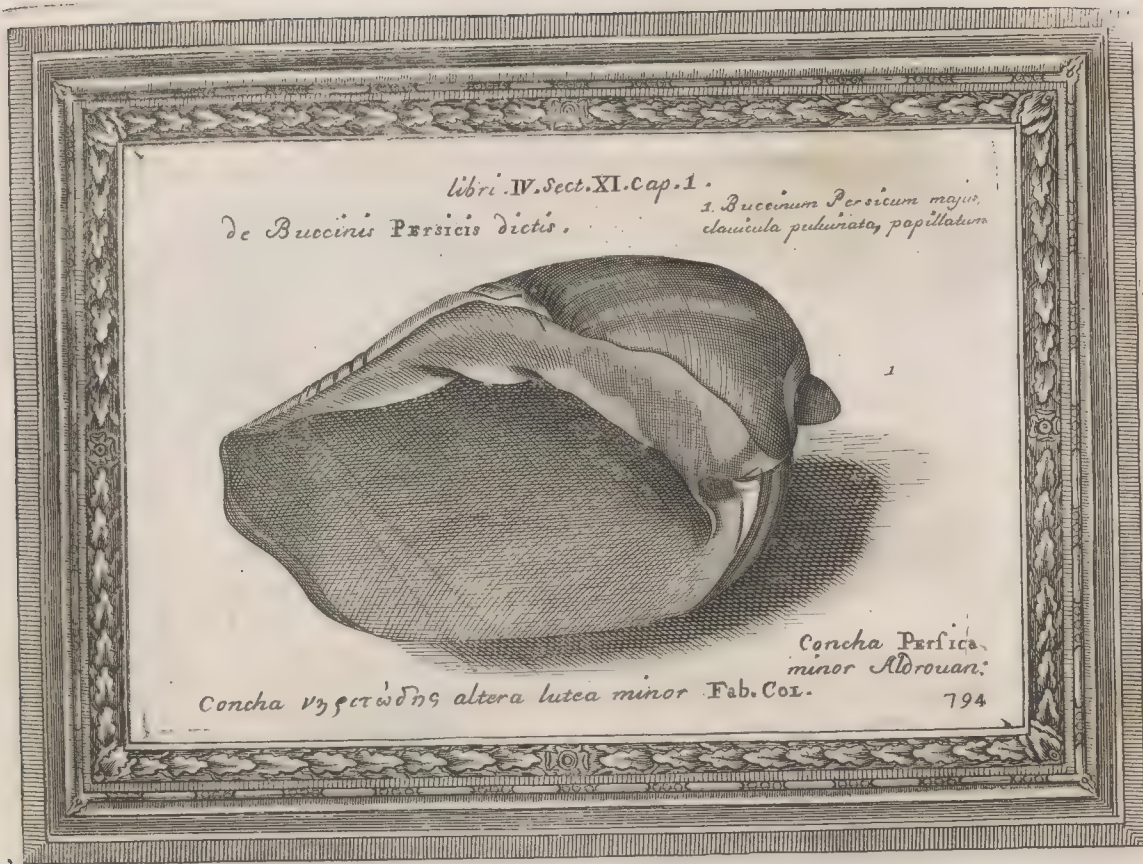 libri .IV. Sect. XI. Cap. 1 .
de Buccinis Persicis dictis .
1. Buccinum Persicum majus,
clavicula pulvinata, papillatum
1
Concha Persica
minor Aldrouan:
Concha νηρετώδης altera lutea minor Fab. Col.
794